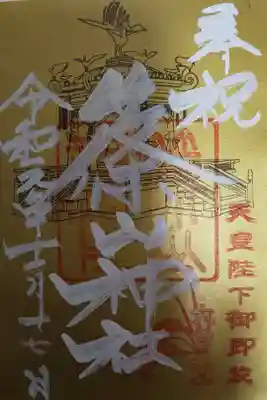 奉祝
天皇陛下御即位
篠山神社
令和元年十一月十七日